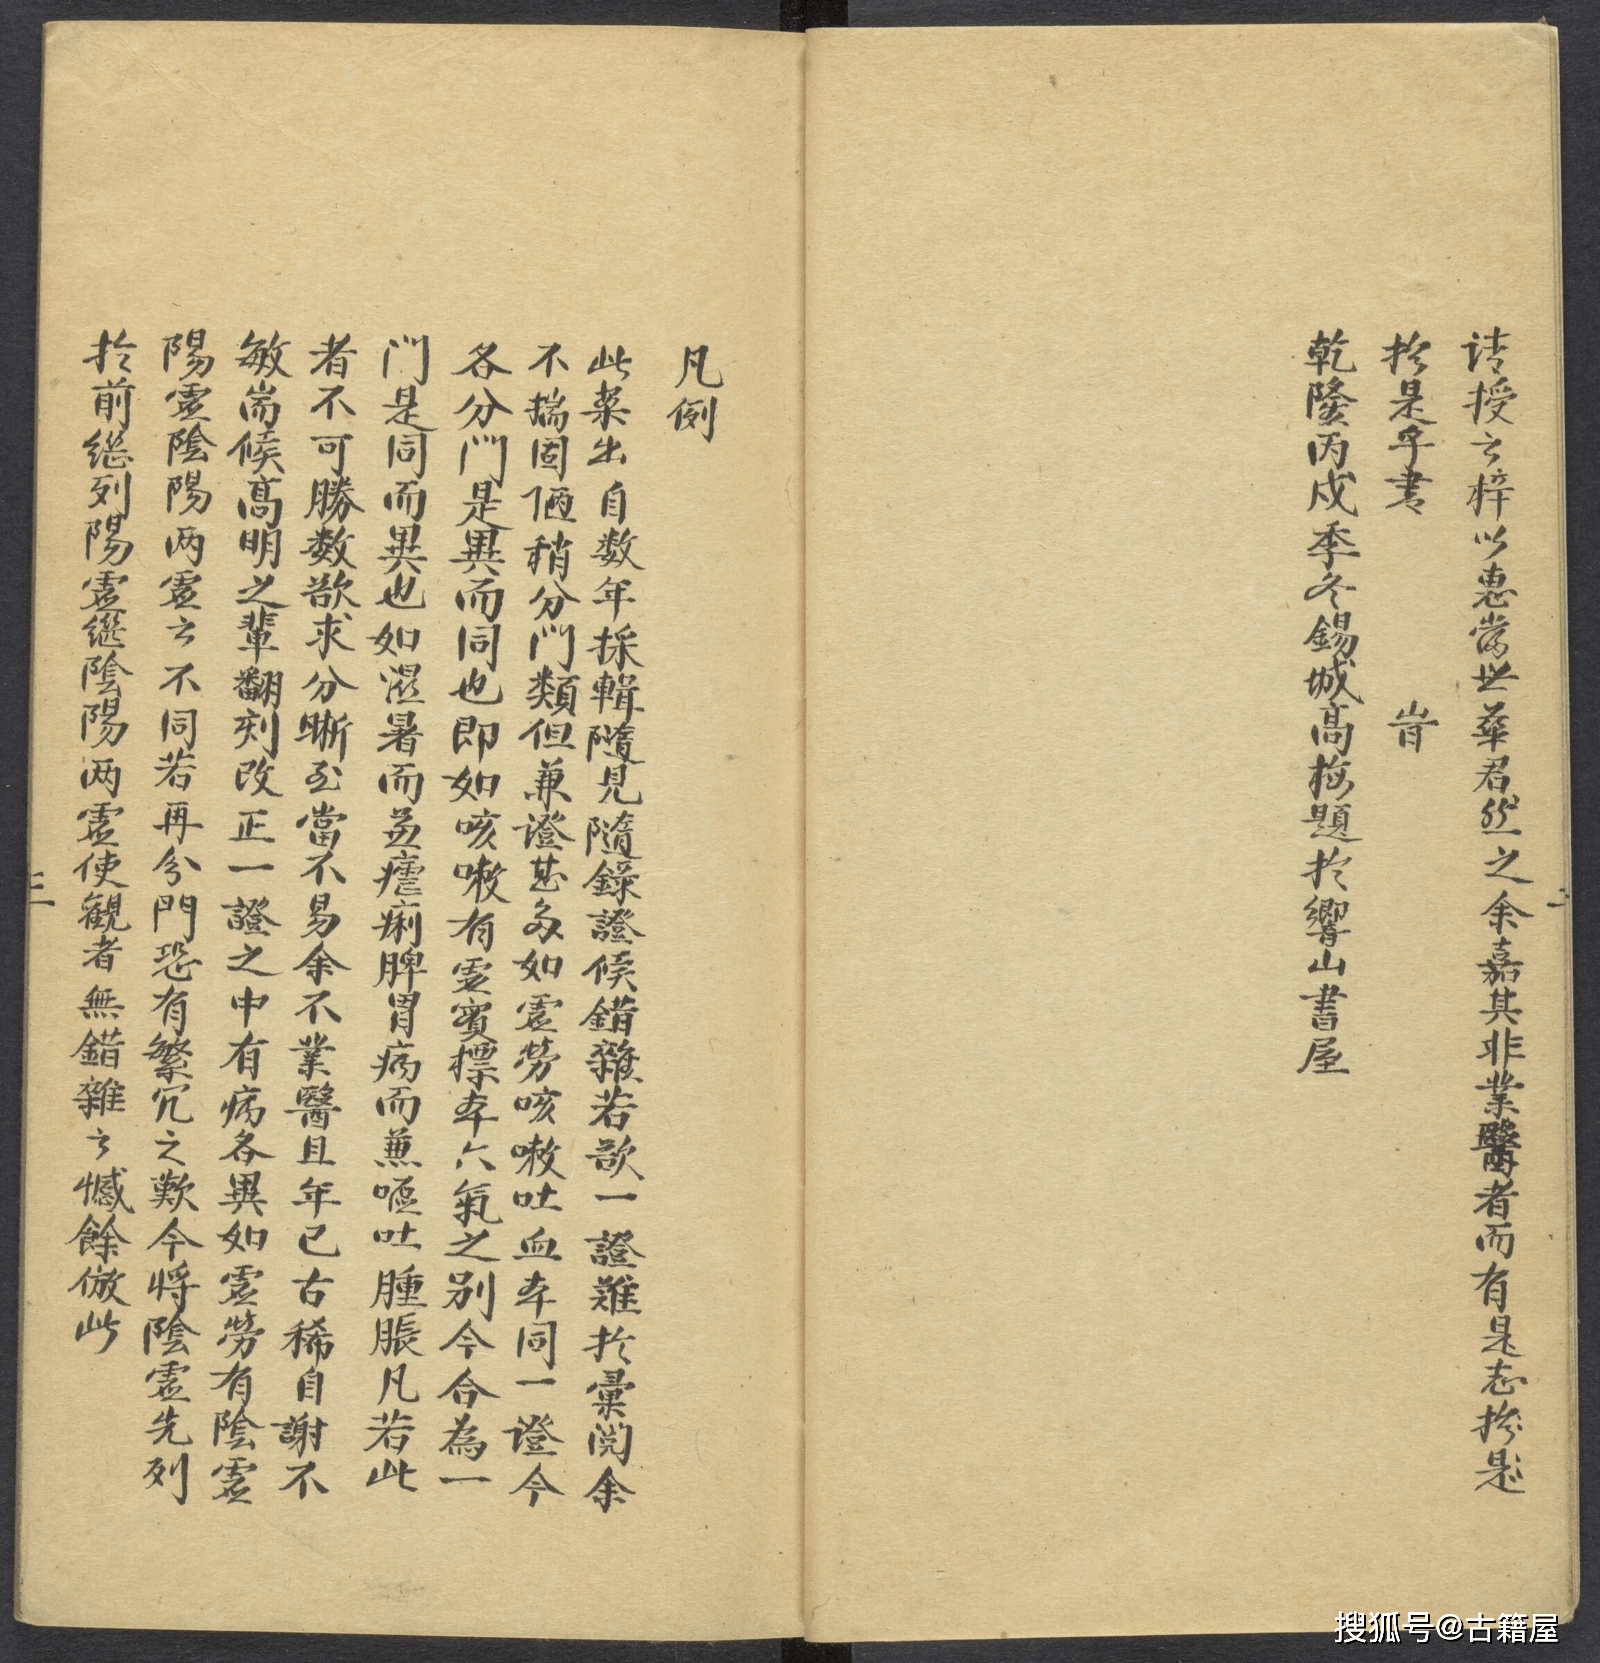 請授之梓以惠當世華君然之余嘉其非業醫者而有是志於是
於是乎書　　　　　　　　　　　　　　　　　　　　　　　　　　　　　　　　　　　　　　　　　　　　　　　　　　　　　　　　　
乾隆丙戌季冬錫城高梅題於響山書屋
二
凡例
此葉出自数年採輯隨見隨錄證候錯雜若欲一證難於彙閲余
不揣固陋稍分門類但兼證甚多如虛勞咳嗽吐血本同一證今
各分門是異而同也即如咳嗽有虛實標本六氣之別今合為一
門是同而異也如濕暑而兼瘧痢脾胃病而兼嘔吐腫脹凡若此
者不可勝数欲求分晰至當不易余不業醫且年已古稀自謝不
敏耑候高明之輩翻刻改正一證之中有病各異如虛勞有陰虛
陽虛陰陽两虛之不同若再分門恐有繁冗之歎今将陰虛先列
於前繼列陽虛繼陰陽两虛使觀者無錯雜之憾餘倣此
三
搜狐号@古籍屋